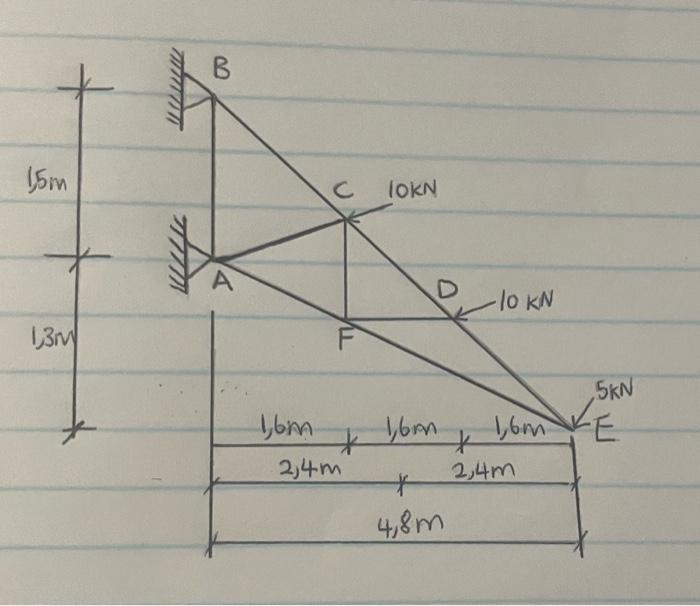 B
1,5m
C
10KN
A
D
10 KN
1,3m
F
5KN
E
1,6m
1,6m
1,6m
2,4m
2,4m
4,8m